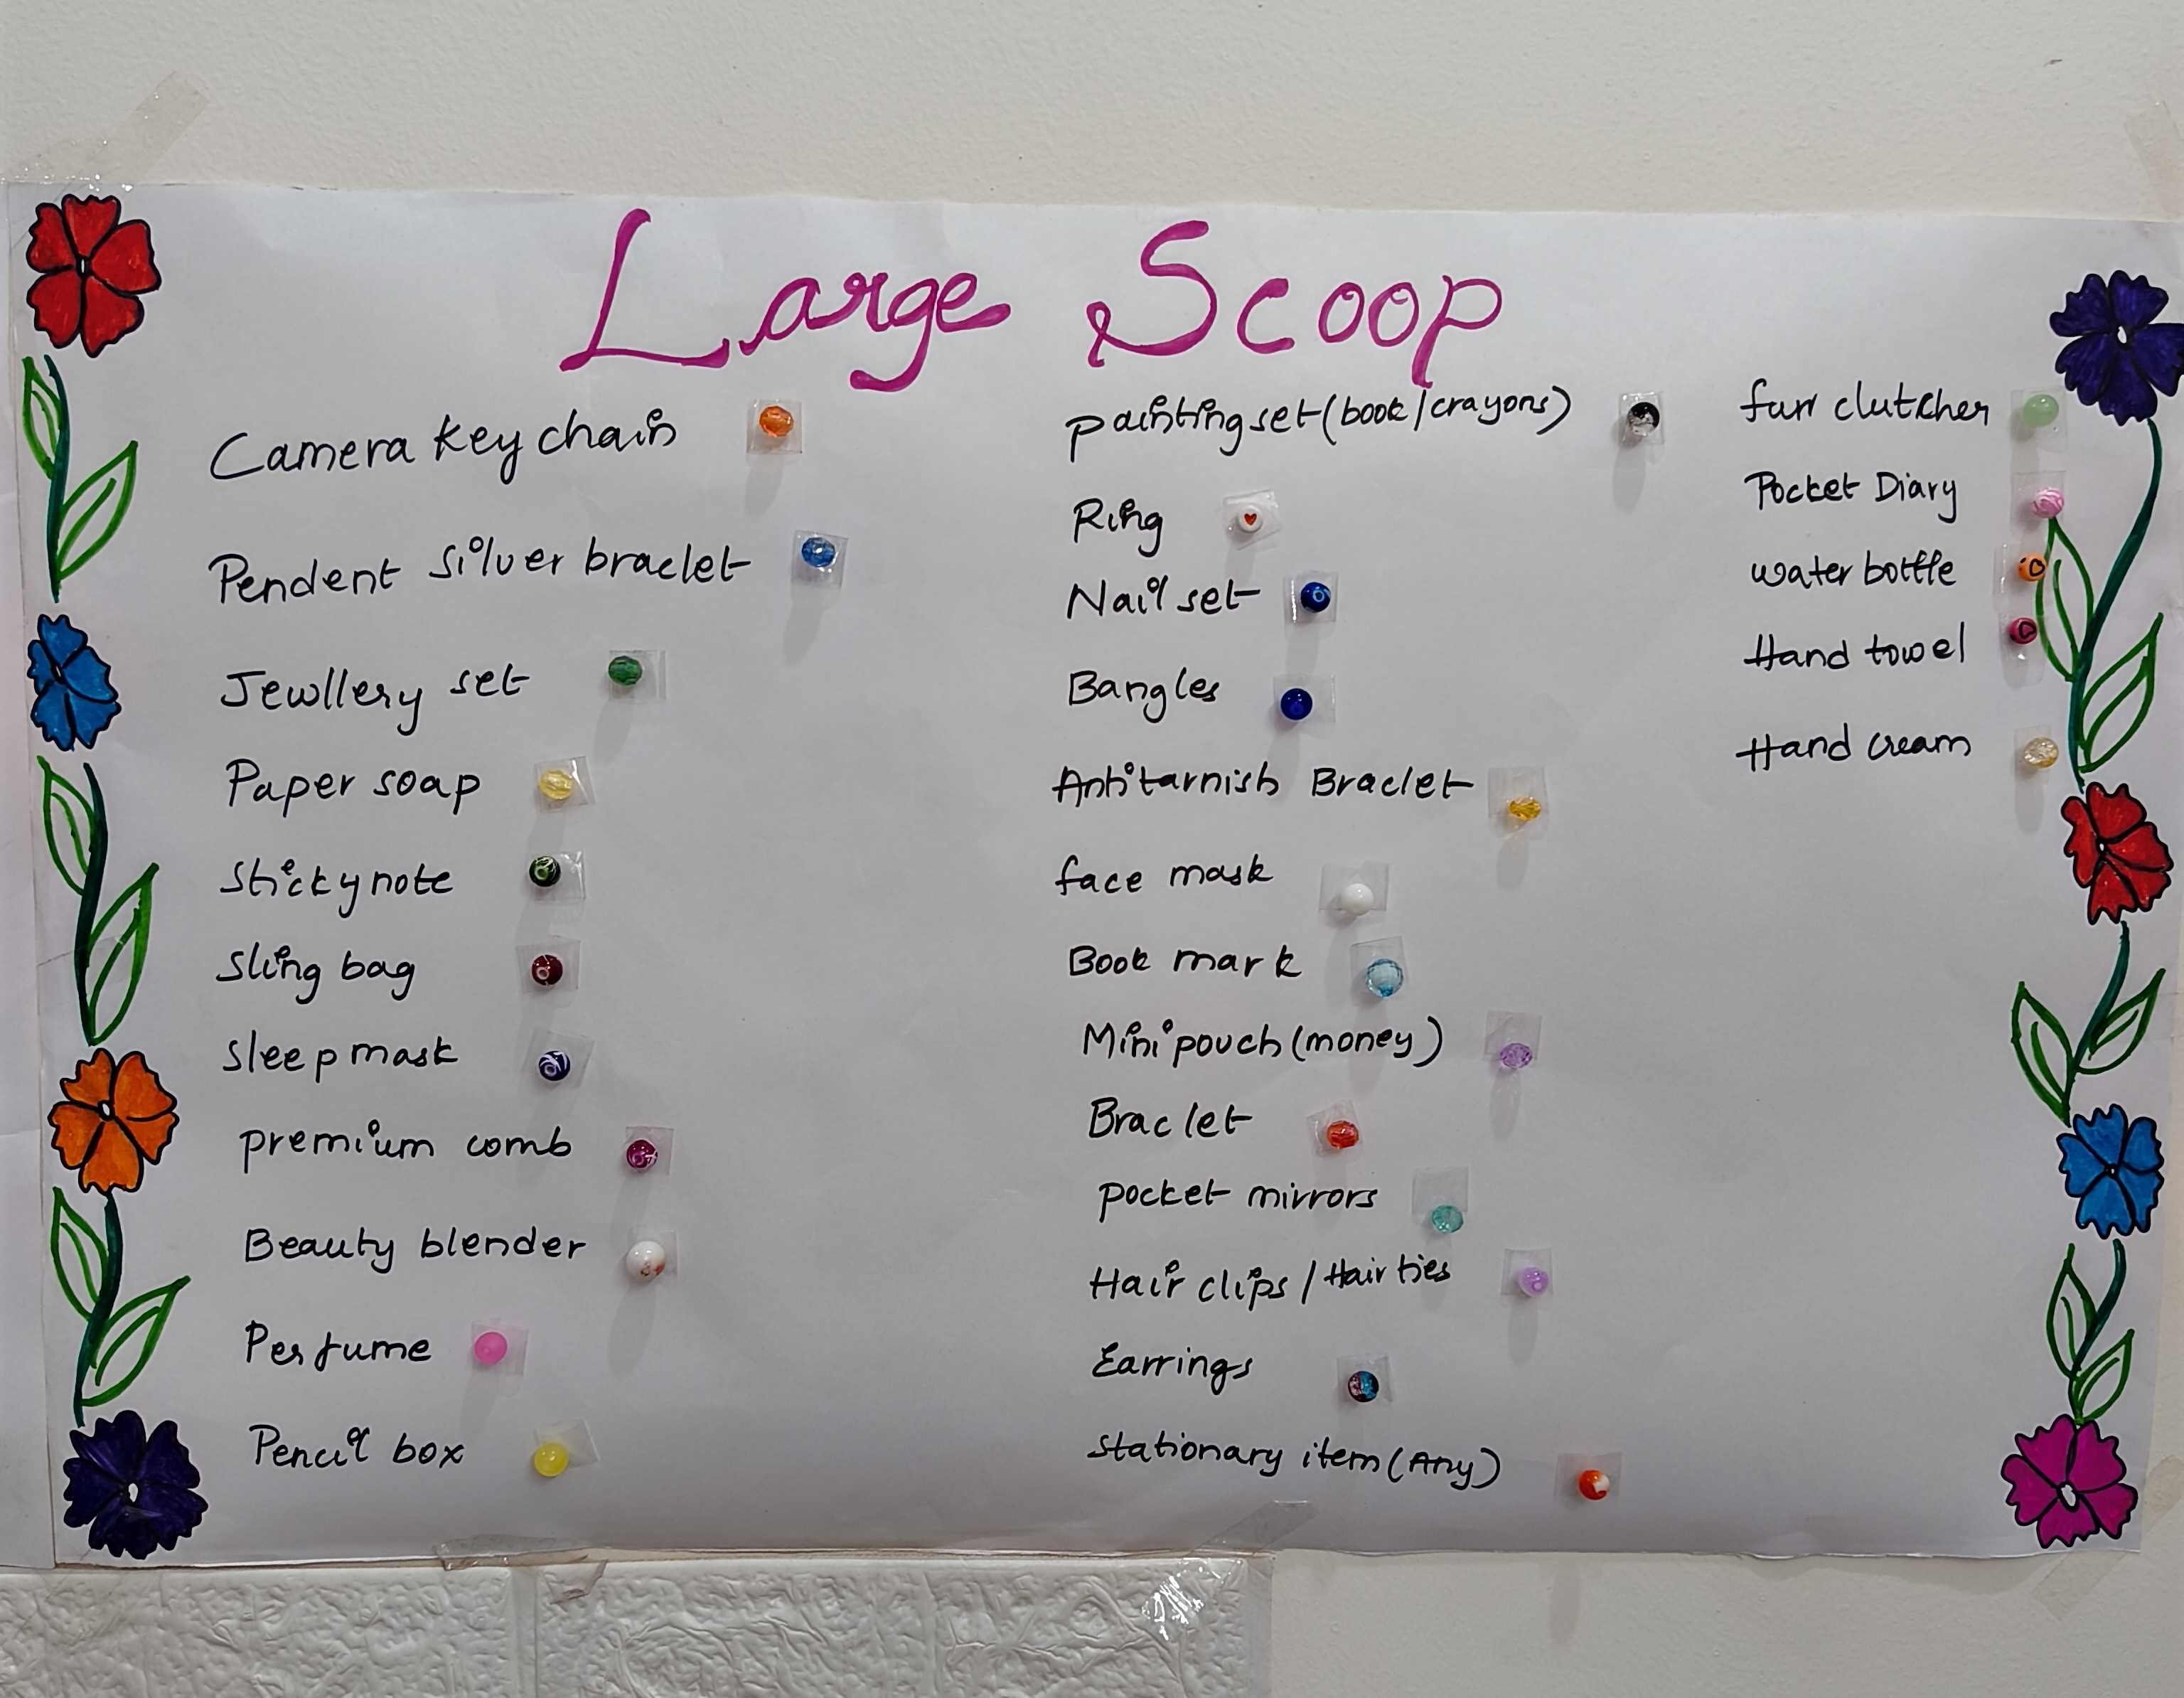 Large Scoop
Camera key chain
Pendent silver braclet
Jewllery set
Paper soap
Sticky note
Sling bag
Sleep mask
premium comb
Beauty blender
Perfume
Pencil box
painting set (book/crayons)
Ring
Nail set
Bangles
Antitarnish Braclet
face mask
Book mark
Mini pouch (money)
Braclet
pocket mirrors
Hair clips / Hair ties
Earrings
Stationary item (Any)
furr clutcher
Pocket Diary
water bottle
Hand towel
Hand cream